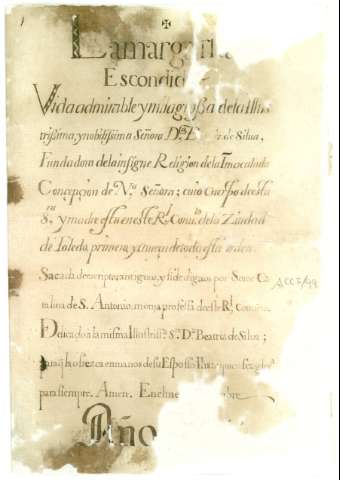 La margar
Escondid
Vida admirable y milagrossa de la Illus
trissima, y nobilissima Señora Dª. B de Silua,
Fundadora de la insigne Religion de la Inmaculada
Concepcion de Nª. Señora; cuio Cuerpo de esta
Sra. y madre està en este Rl. Conuto. de la Ziudad
de Toledo, primera y caueza de toda esta orden.
Sacada de excriptos antiguos, y fidedignos por Soror Ca
talina de S. Antonio, monja professa de este Rl. Conuento.
Dedicado a la misma Illustrissª. Sª. Dª. Beatriz de Silua;
para q̃ lo ofrezca en manos de su Esposso
para siempre. Amen. bre
Año
ACC7/99